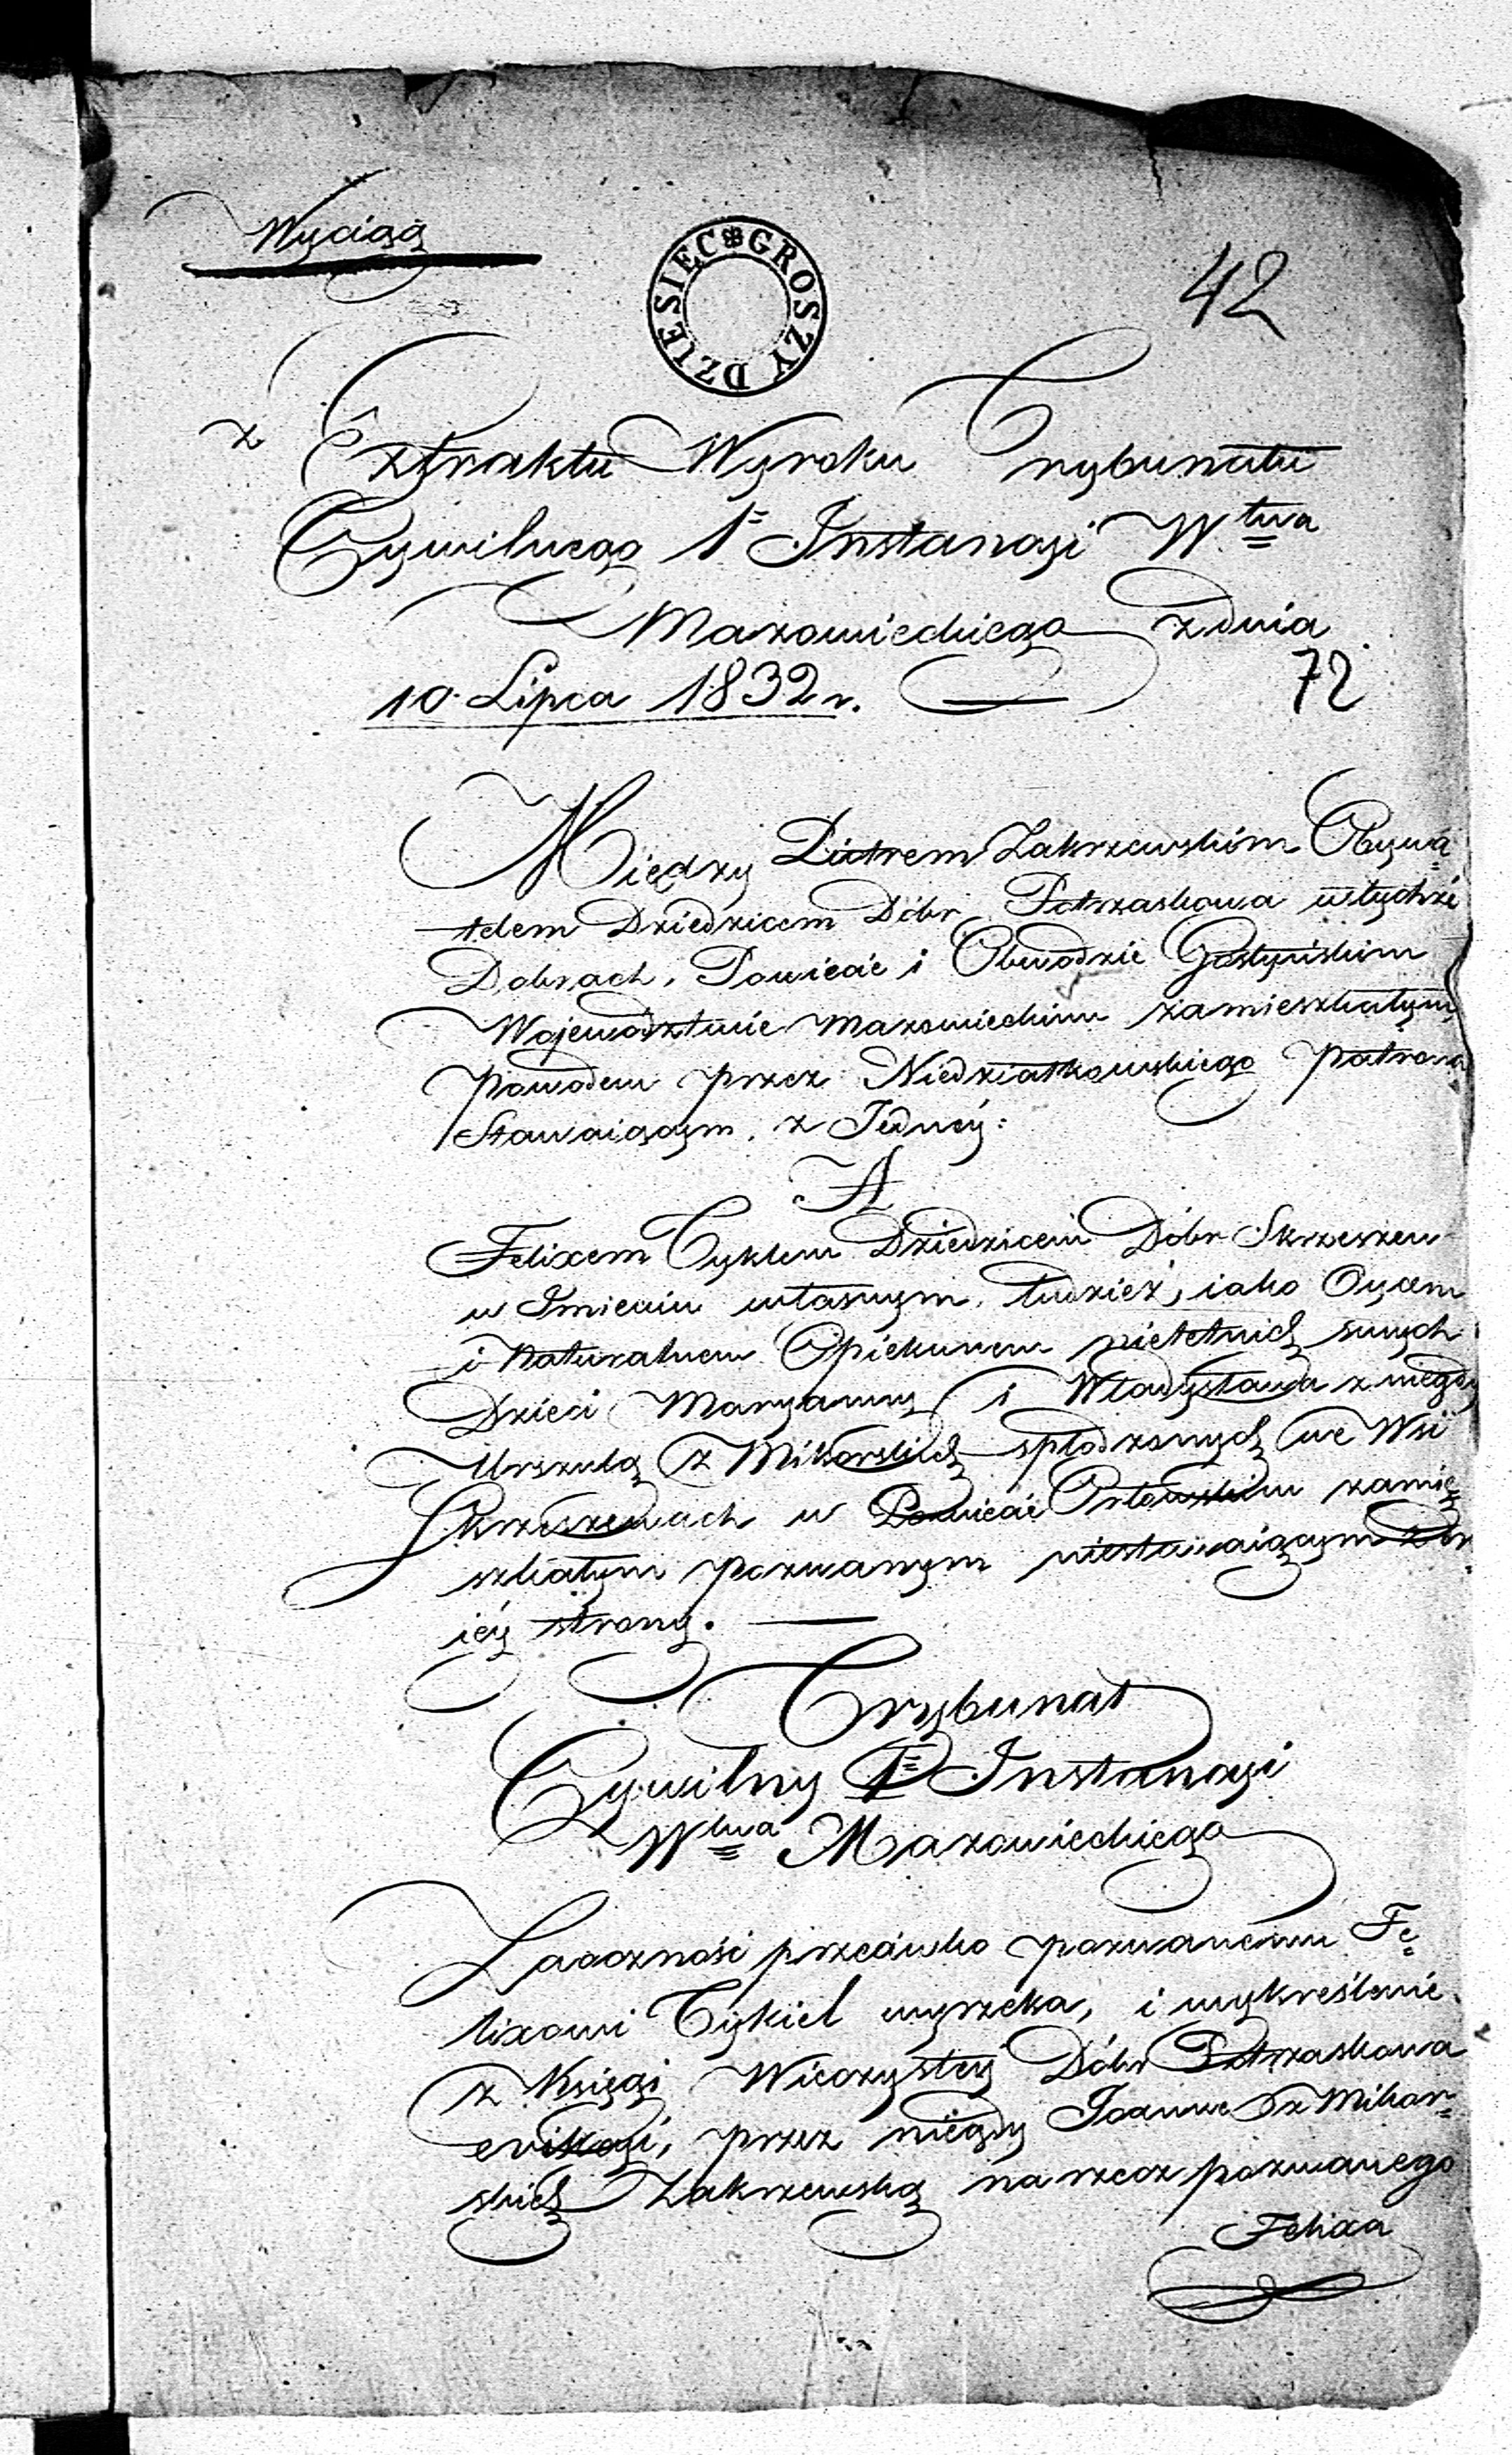 Wyciąg
DZIESIĘC GROSZY
42
z Extraktu Wyroku Trybunału
Cywilnego 1º Instancyi Wtwa
Mazowieckiego z dnia
10. Lipca 1832 r.
72
Między Piotrem Zakrzewskim Obywa=
telem Dziedzicem Dóbr Potrzaskowa w tychże
Dobrach, Powiecie i Obwodzie Gostyńskim
Województwie Mazowieckim zamieszkałym
Powodem przez Niedziałkowskiego Patrona
Stawaiącym, z Jednéy:
A
Felixem Cyklem Dziedzicem Dóbr Skrzeszew
w Imieniu własnym, tudzież, iako Oycem
i Naturalnem Opiekunem nieletnich swych
Dzieci Maryanny i Władysława z niegdy
Urszulą z Mikorskich spłodzonych we Wsi
Skrzeszewach w Powiecie Orłowskim zamie=
szkałym pozwanym niestawaiącym z dru
iéy strony.
Trybunał
Cywilny 1º Instancyi
Wtwa Mazowieckiego
Zaoczność przeciwko pozwanemu Fe=
lixowi Cykiel wyrzeka, i wykreślenie
z Księgi Wieczystéy Dóbr Potrzaskowa
ewikcyi, przez niegdy Joannę z Mikor=
skich Zakrzewską na rzecz pozwanego
Felixa